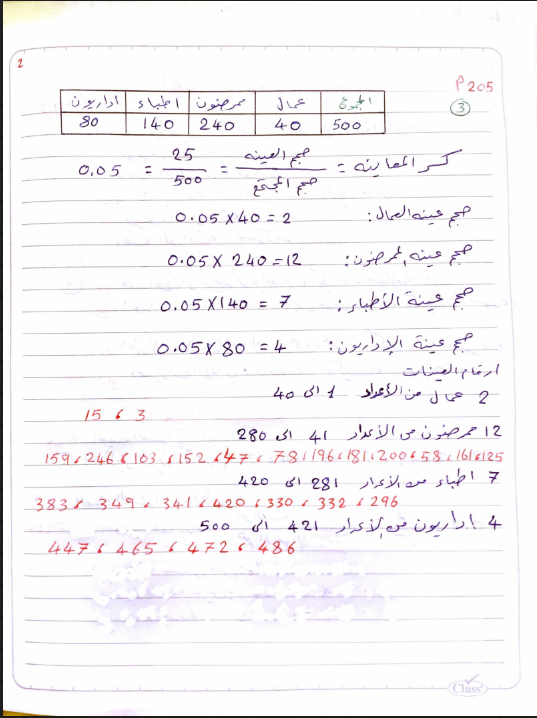 2
P 205
3
المجموع عمال ممرضون اطباء اداريون
500 40 240 140 80
كسر المعاينه = حجم العينه / حجم المجتمع = 25 / 500 = 0.05
حجم عينه العمال: 0.05 X 40 = 2
حجم عينه لممرضون: 0.05 X 240 = 12
حجم عينة الأطباء: 0.05 X 140 = 7
حجم عينة الإداريون: 0.05 X 80 = 4
ارقام العينات
2 عمال من الأعداد 1 الى 40
15 ، 3
12 ممرضون من الأعداد 41 الى 280
159 ، 246 ، 103 ، 152 ، 47 ، 78 ، 196 ، 181 ، 200 ، 58 ، 161 ، 125
7 اطباء من الأعداد 281 الى 420
383 ، 349 ، 341 ، 420 ، 330 ، 332 ، 296
4 إداريون من الأعداد 421 الى 500
447 ، 465 ، 472 ، 486
Class